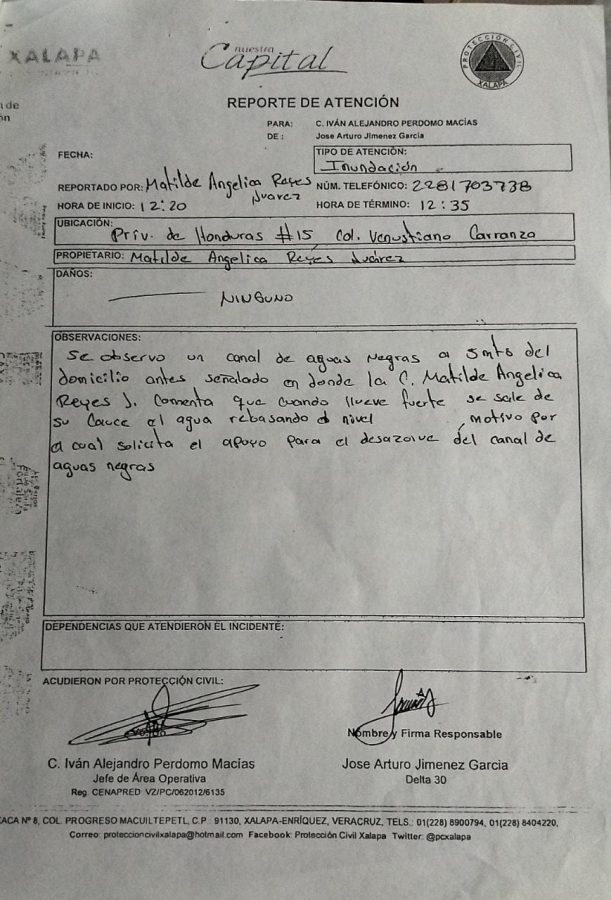 XALAPA
nuestra
Capital
PROTECCIÓN CIVIL
XALAPA
REPORTE DE ATENCIÓN
PARA: C. IVÁN ALEJANDRO PERDOMO MACÍAS
DE : Jose Arturo Jimenez Garcia
FECHA:
TIPO DE ATENCIÓN:
Inundación
REPORTADO POR: Matilde Angelica Reyes
Juarez
NÚM. TELEFÓNICO: 2281703738
HORA DE INICIO: 12:20
HORA DE TÉRMINO: 12:35
UBICACIÓN:
Priv. de Honduras #15 Col. Venustiano Carranza
PROPIETARIO: Matilde Angelica Reyes Juárez
DAÑOS:
NINGUNO
OBSERVACIONES:
Se observo un canal de aguas negras a 5mts del
domicilio antes señalado en donde la C. Matilde Angelica
Reyes J. Comenta que cuando llueve fuerte se sale de
su Cauce el agua rebasando el nivel , motivo por
el cual solicita el apoyo para el desazolve del canal de
aguas negras
DEPENDENCIAS QUE ATENDIERON EL INCIDENTE:
ACUDIERON POR PROTECCIÓN CIVIL:
Nombre y Firma Responsable
C. Iván Alejandro Perdomo Macías
Jefe de Área Operativa
Reg. CENAPRED VZ/PC/062012/6135
Jose Arturo Jimenez Garcia
Delta 30
ACA Nº 8, COL. PROGRESO MACUILTEPETL, C.P. 91130, XALAPA-ENRÍQUEZ, VERACRUZ, TELS.: 01(228) 8900794, 01(228) 8404220,
Correo: proteccioncivilxalapa@hotmail.com Facebook: Protección Civil Xalapa Twitter: @pcxalapa